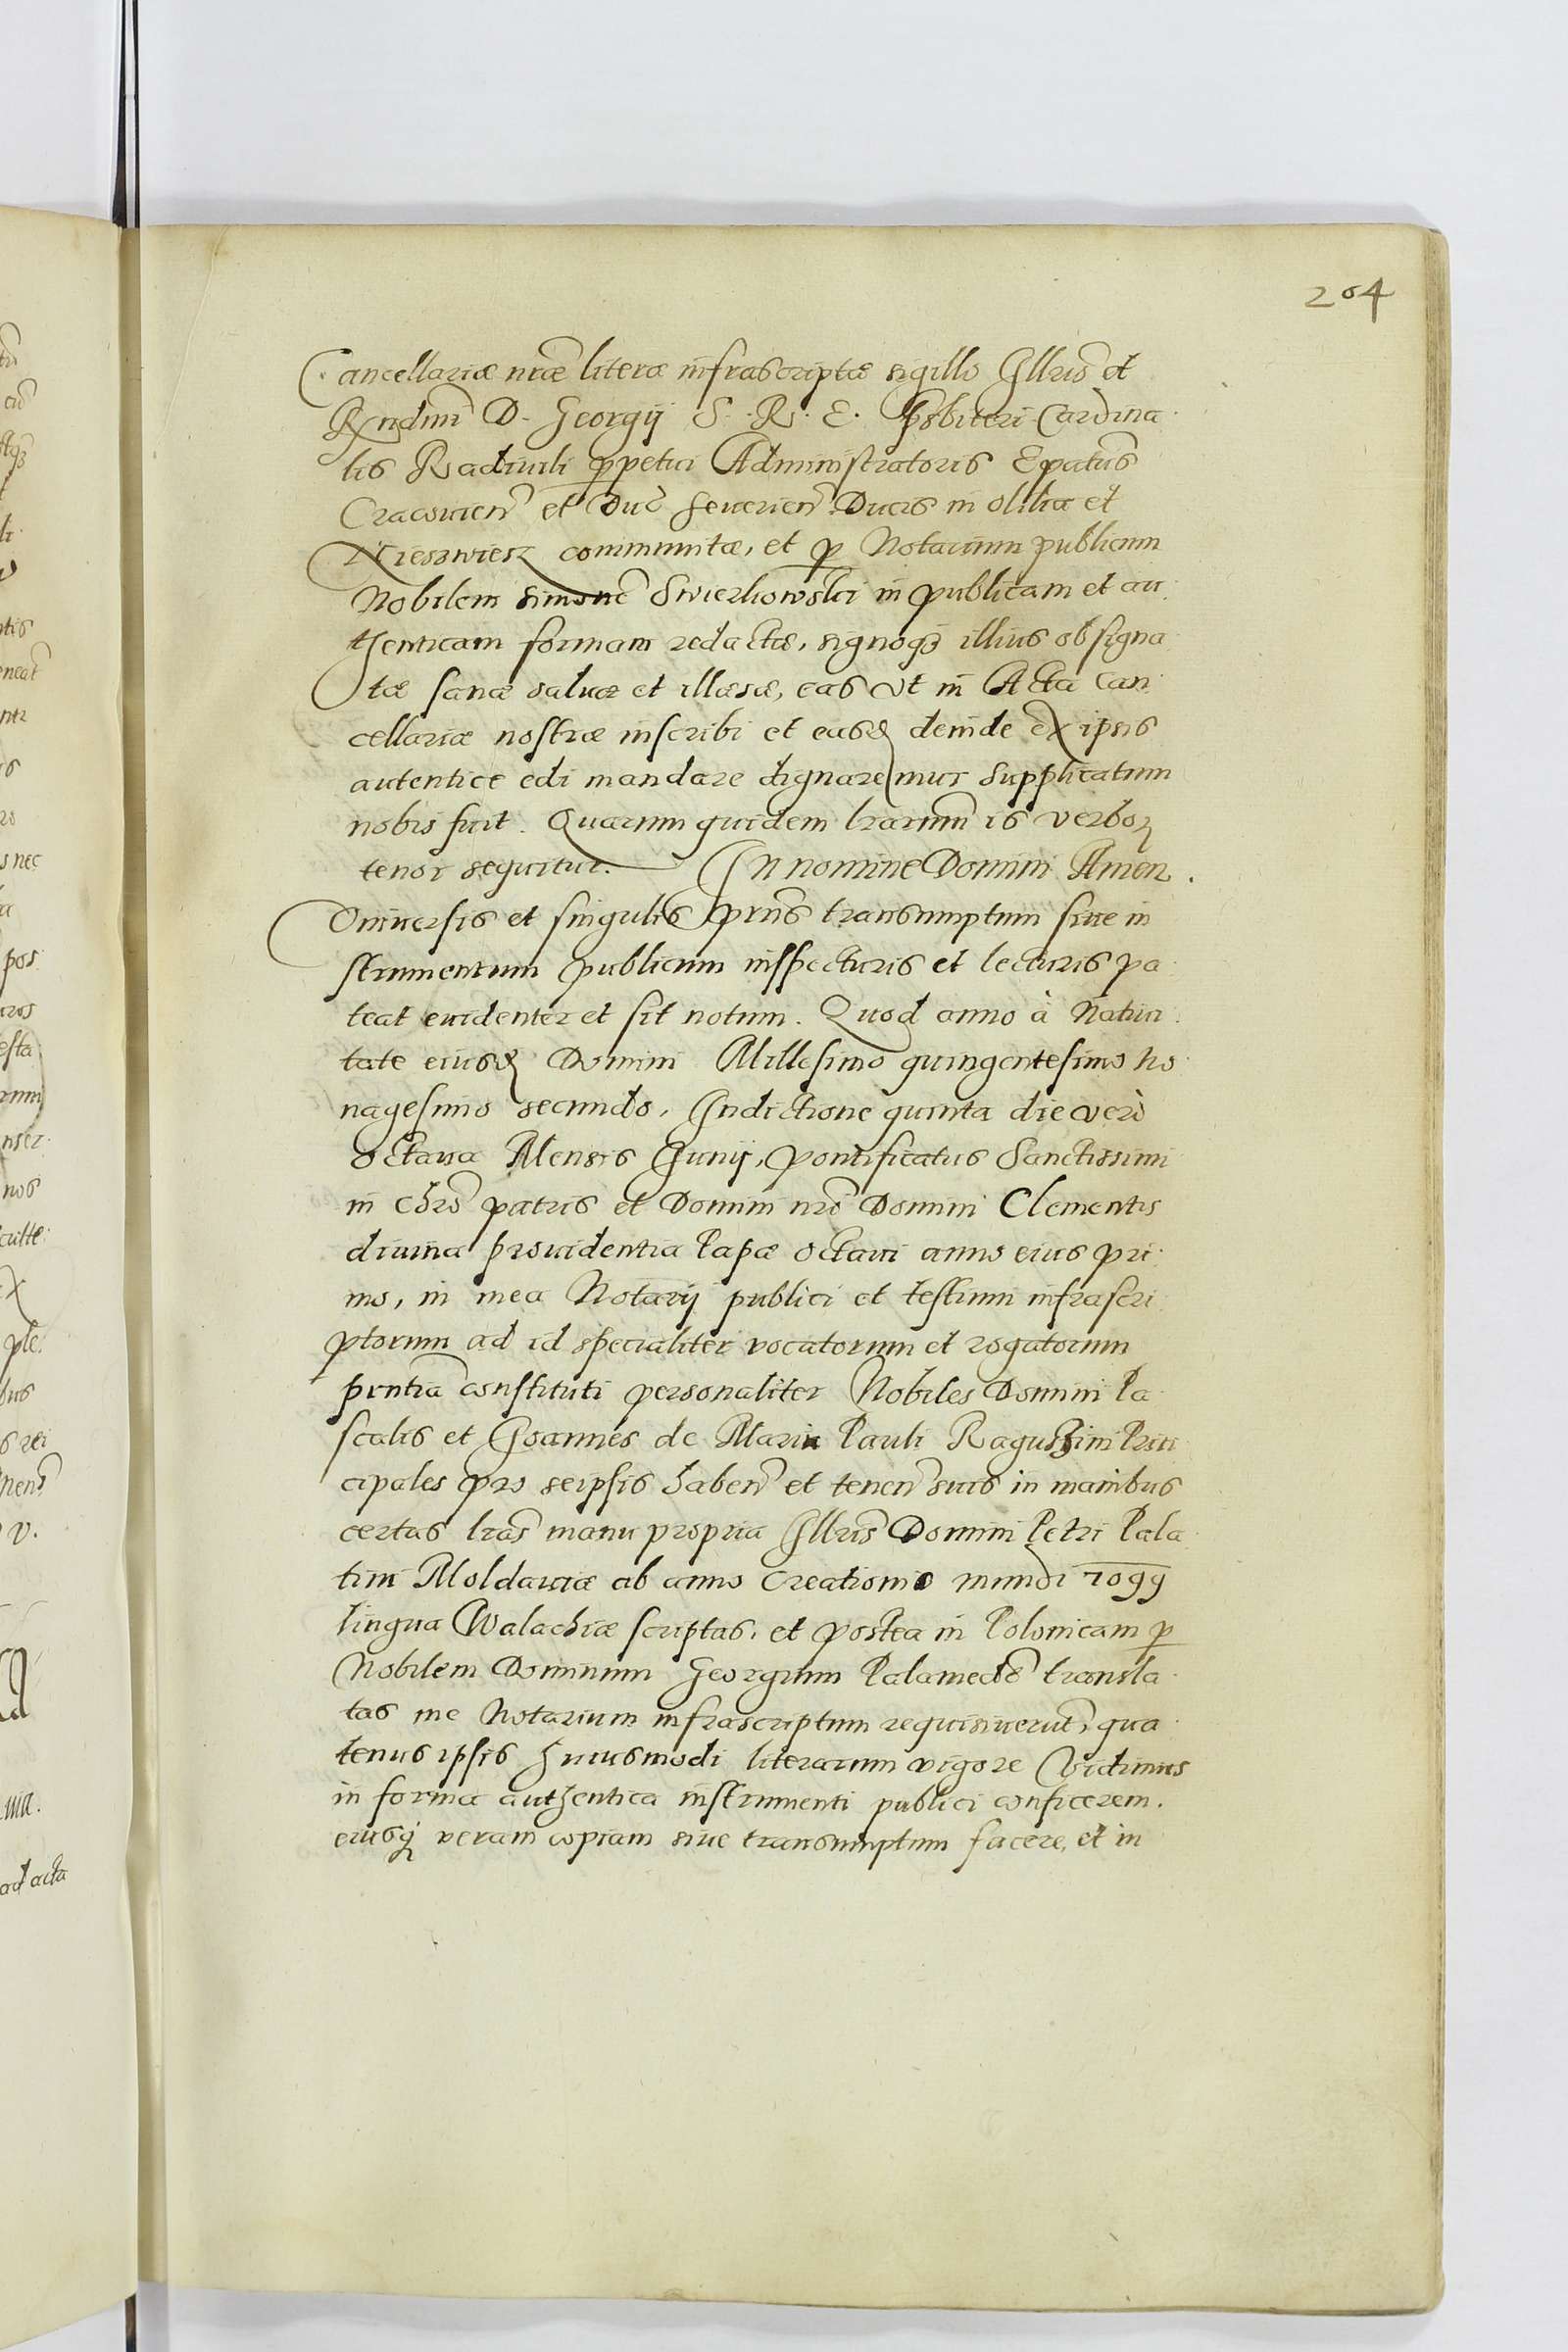 204
Cancellariæ nr̃æ literæ infrascriptæ sigillo Illris̃ et
Rn̄dimi D. Georgij S. R. E. Prsbiteri Cardina
lis Radiuili ꝑpetui Administratoris Ep̃atus
Cracouien̄ et Duc̃ Seuerien̄ Ducis in Olika et
Nieszwiesz communitæ, et ꝑ Notarium publicum
Nobilem Simonē Swierkowski in publicam et au
thenticam formam redactæ, signoqꝫ illius obsigna
tæ sanæ saluæ et illæsæ, eas vt in Acta Can
cellariæ nostræ inscribi et easd deinde ex ipsis
autentice edi mandare dignaremur supplicatum
nobis fuit. Quarum quidem lrarum̃ is verboꝝ
tenor sequitur. In nomine Domini Amen.
Vniuersis et singulis prn̄s transumptum siue in
strumentum publicum inspecturis et lecturis pa
teat euidenter et sit notum. Quod anno à Natiui
tate eiusd Domini Millesimo quingentesimo no
nagesimo secundo, Indictione quinta die verò
octaua Mensis Junij, Pontificatus Sanctissimi
in Chrõ patris et Domini nrĩ Domini Clementis
diuina prouidentia Papæ octaui anno eius pri
mo, in mea Notarij publici et testium infrascri
ptorum ad id specialiter vocatorum et rogatorum
prntiã constituti personaliter Nobiles Domini Pa
scalis et Joannes de Marin Pauli Ragussini Prin
cipales pro seipsis haben̄ et tenen̄ suis in manibus
certas lrãs manu propria Illris̃ Domini Petri Pala
tini Moldauiæ ab anno Creationis mundi 7099
lingua Walachiæ scriptas, et postea in Polonicam ꝑ
Nobilem Dominum Georgium Palamedē transla
tas me Notarium infrascriptum requisiuerūt, qua
tenus ipsis huiusmodi literarum vigore Vidimus
in forma authentica instrumenti publici conficerem.
eiusq veram copiam siue transumptum facere, et in